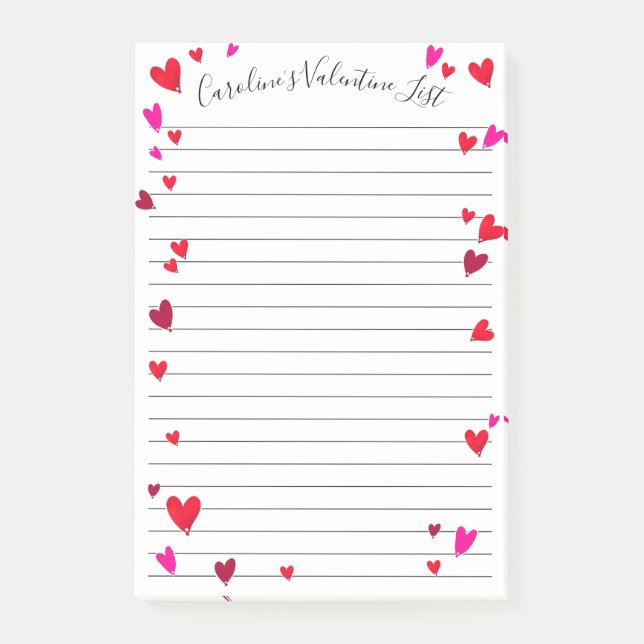 Caroline's Valentine List